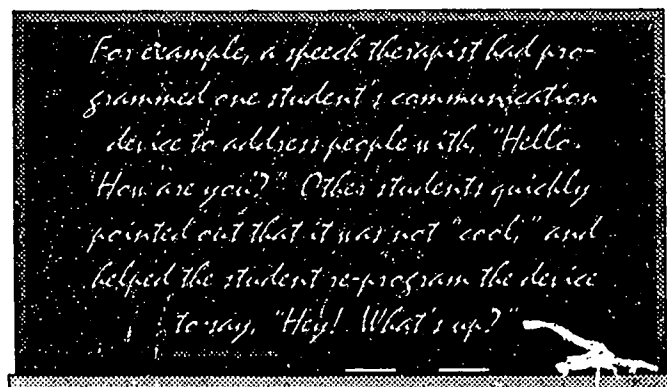 For example, a speech therapist had pro-
grammed one student's communication
device to address people with, "Hello.
How are you?" Other students quickly
pointed out that it was not "cool," and
helped the student re-program the device
to say, "Hey! What's up?"